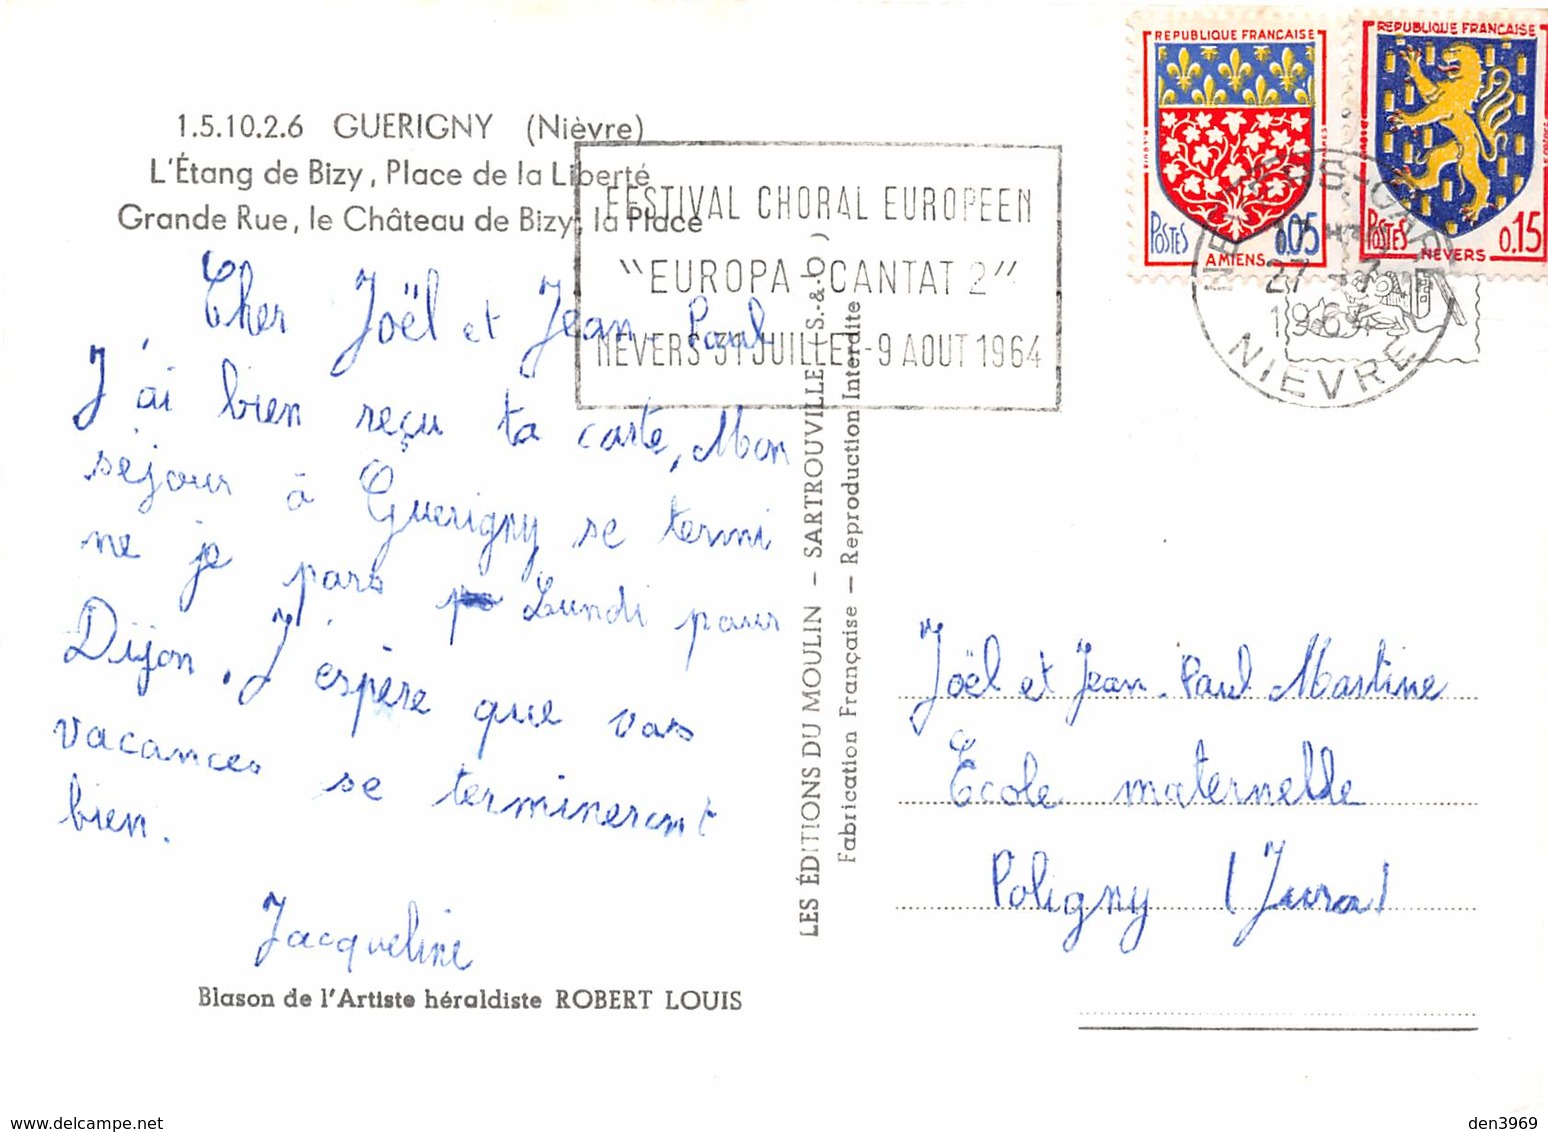 1.5.10.2.6 GUERIGNY (Nièvre)
L'Étang de Bizy, Place de la Liberté
Grande Rue, le Château de Bizy, la Place
Cher Joël et Jean-Paul
J'ai bien reçu ta carte, Mon
séjour à Guerigny se termi
ne je pars Lundi pour
Dijon. J'espère que vos
vacances se termineront
bien.
Jacqueline
Blason de l'Artiste héraldiste ROBERT LOUIS
FESTIVAL CHORAL EUROPEEN
"EUROPA CANTAT 2"
NEVERS 31 JUILLET-9 AOUT 1964
LES ÉDITIONS DU MOULIN – SARTROUVILLE (S.-&-O.)
Fabrication Française — Reproduction Interdite
REPUBLIQUE FRANÇAISE
POSTES
0.05
AMIENS
REPUBLIQUE FRANÇAISE
POSTES
0.15
NEVERS
NEVERS-GARE
27
NIEVRE
Joël et Jean-Paul Martine
Ecole maternelle
Poligny (Jura)
delcampe.net
den3969